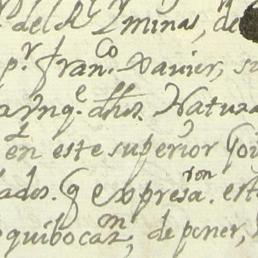 del Rl minas, de
pr. Franco. Xavier, su
aunqe. dhos. Natura
en este superior Goi
ados. q expresaron. est
equibocaon, de poner,